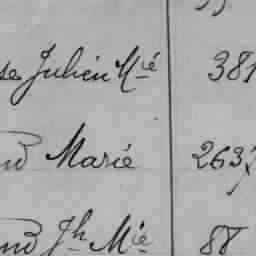 se Julien Mié 381
nd Marie 2637
nd Jh Mie 88